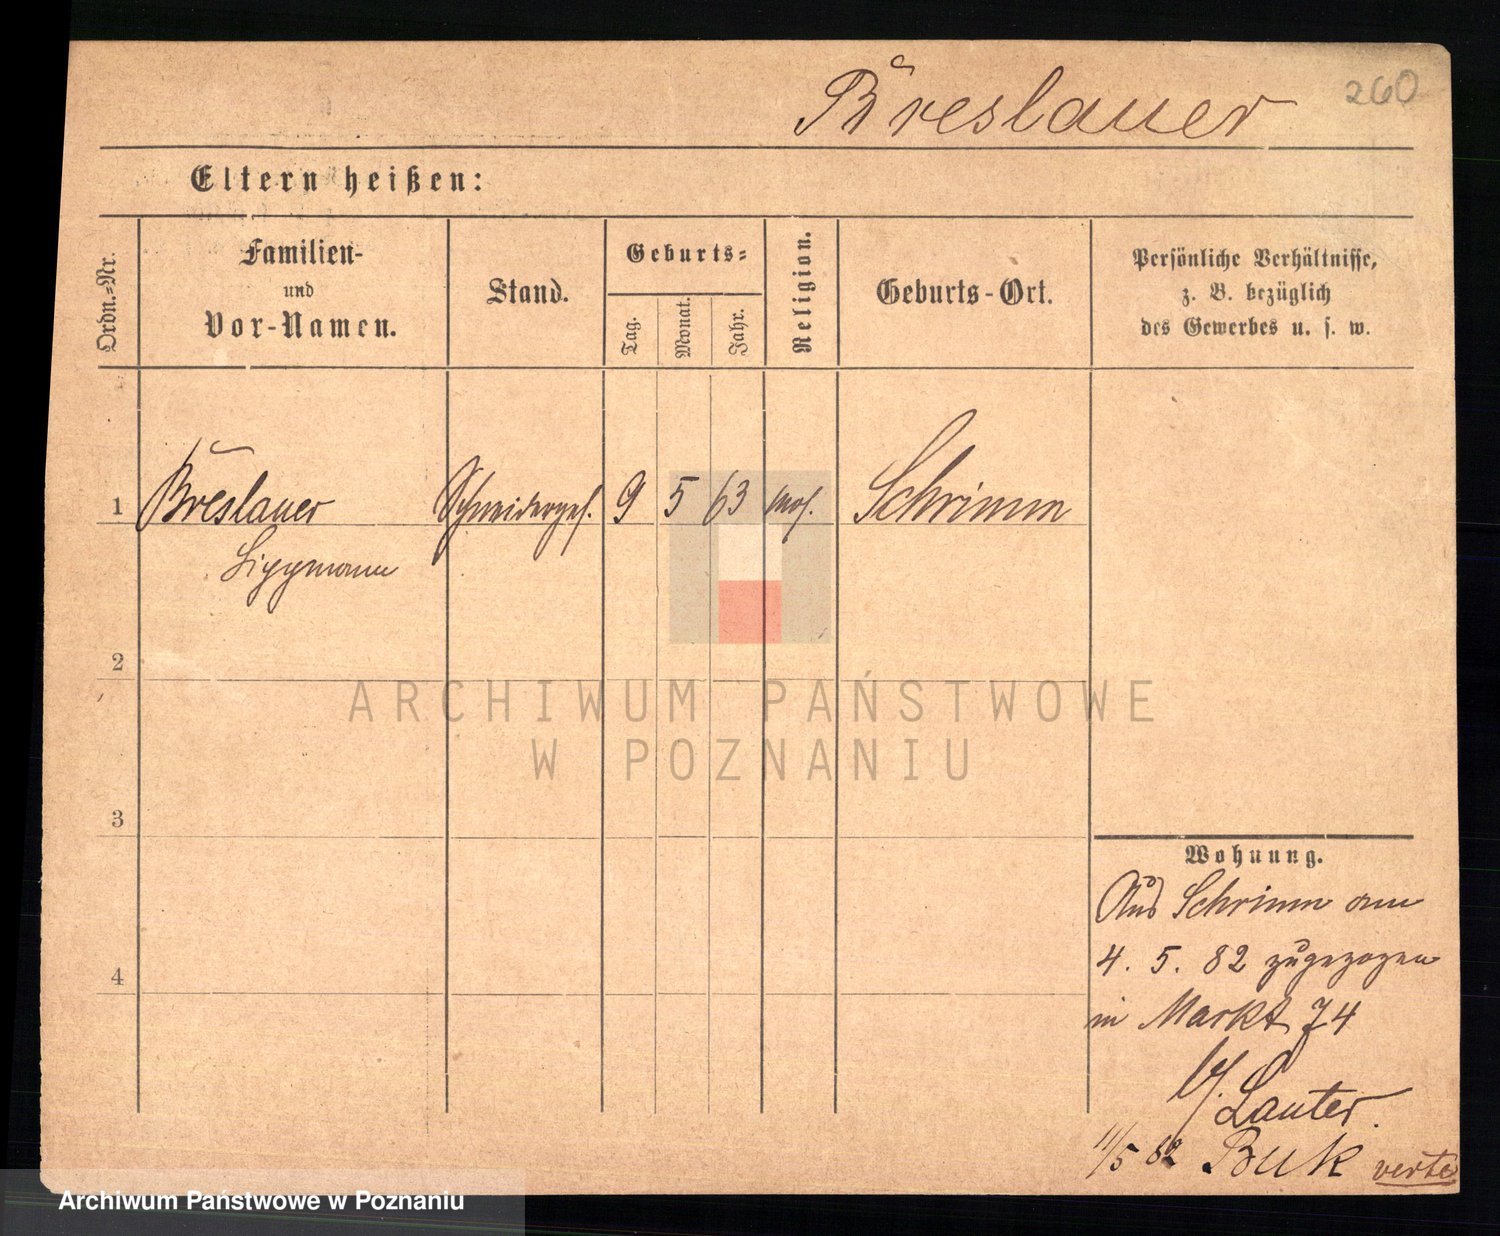 Breslauer
260
Eltern heißen:
Ordn.-Nr.
Familien-
und
Vor-Namen.
Stand.
Geburts-
Tag.
Monat.
Jahr.
Religion.
Geburts-Ort.
Persönliche Verhältnisse,
z. B. bezüglich
des Gewerbes u. s. w.
1 Breslauer Schneiderges. 9 5 63 mos. Schrimm
Lippmann
2
3
4
ARCHIWUM PAŃSTWOWE
W POZNANIU
Wohnung.
Aus Schrimm am
4. 5. 82 zugezogen
in Markt 74
b/. Lauter.
11/5 82 Buk verte
Archiwum Państwowe w Poznaniu